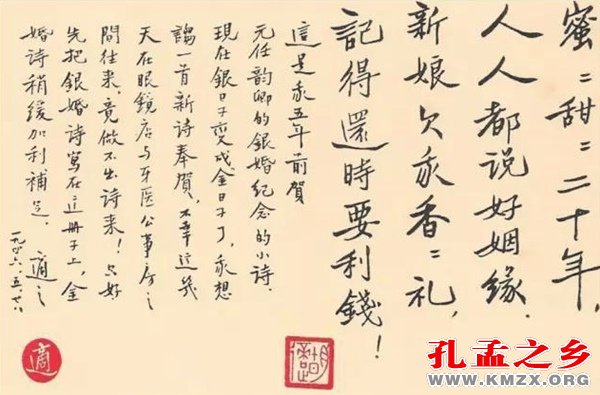 蜜〻甜〻二十年,
人人都说好姻緣.
新娘欠我香〻礼,
記得還時要利錢!
這是我五年前賀
元任韵卿的銀婚紀念的小詩.
現在銀日子變成金日子了, 我想
謅一首新詩奉賀, 不幸這幾
天在眼鏡店与牙医公事房之
間往来, 竟做不出詩来! 只好
先把銀婚詩寫在這册子上, 金
婚詩稍緩加利補足. 適之
一九四六.五.廿八
適
胡適
孔孟之乡
WWW.KMZX.ORG